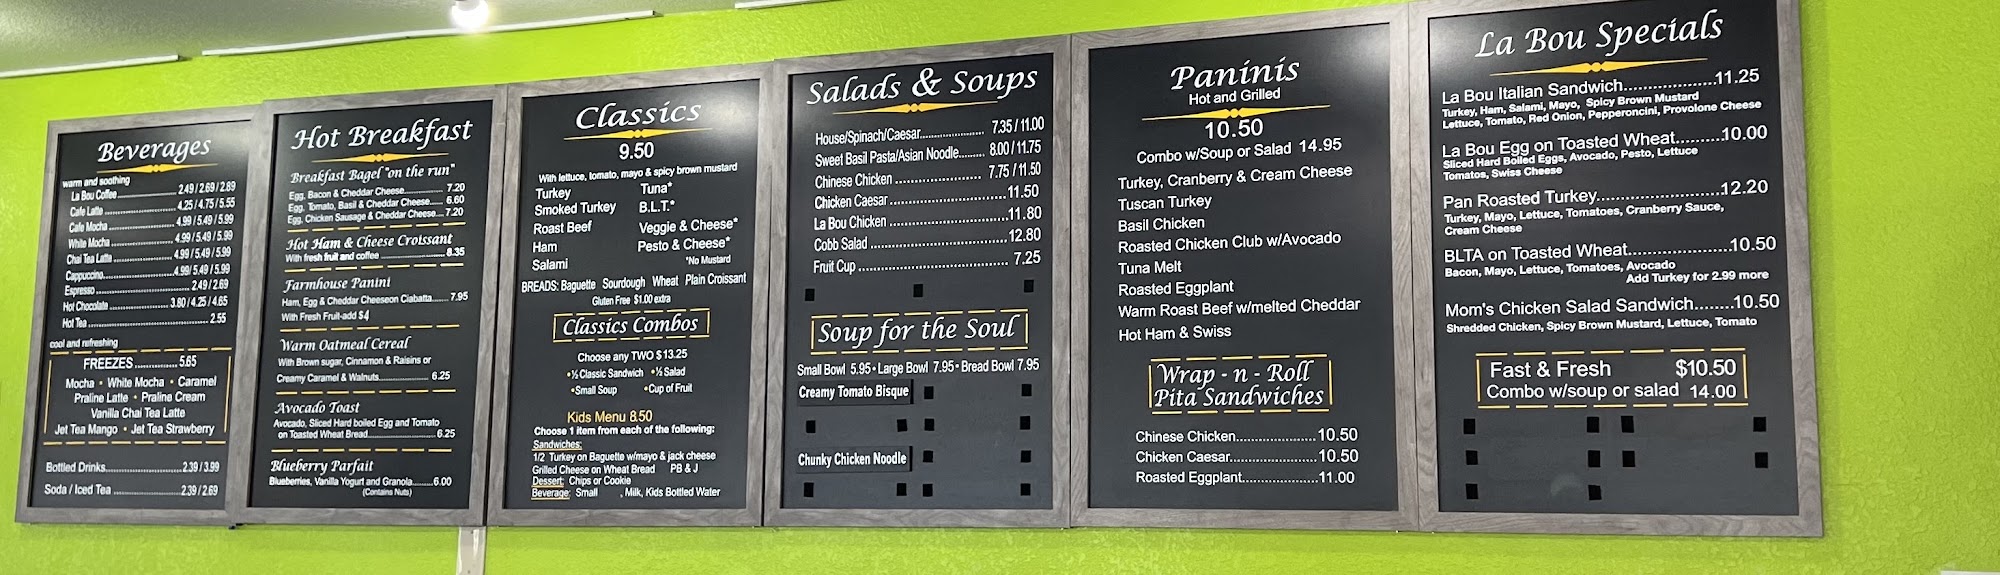 Beverages
warm and soothing
La Bou Coffee 2.49 / 2.69 / 2.89
Cafe Latte 4.25 / 4.75 / 5.55
Cafe Mocha 4.99 / 5.49 / 5.99
White Mocha 4.99 / 5.49 / 5.99
Chai Tea Latte 4.99 / 5.49 / 5.99
Cappuccino 4.99 / 5.49 / 5.99
Espresso 2.49 / 2.69
Hot Chocolate 3.80 / 4.25 / 4.65
Hot Tea 2.55
cool and refreshing
FREEZES 5.65
Mocha • White Mocha • Caramel
Praline Latte • Praline Cream
Vanilla Chai Tea Latte
Jet Tea Mango • Jet Tea Strawberry
Bottled Drinks 2.39 / 3.99
Soda / Iced Tea 2.39 / 2.69
Hot Breakfast
Breakfast Bagel "on the run"
Egg, Bacon & Cheddar Cheese 7.20
Egg, Tomato, Basil & Cheddar Cheese 6.60
Egg, Chicken Sausage & Cheddar Cheese 7.20
Hot Ham & Cheese Croissant
With fresh fruit and coffee 8.35
Farmhouse Panini
Ham, Egg & Cheddar Cheeseon Ciabatta 7.95
With Fresh Fruit-add $4
Warm Oatmeal Cereal
With Brown sugar, Cinnamon & Raisins or
Creamy Caramel & Walnuts 6.25
Avocado Toast
Avocado, Sliced Hard boiled Egg and Tomato
on Toasted Wheat Bread 6.25
Blueberry Parfait
Blueberries, Vanilla Yogurt and Granola 6.00
(Contains Nuts)
Classics
9.50
With lettuce, tomato, mayo & spicy brown mustard
Turkey Tuna*
Smoked Turkey B.L.T.*
Roast Beef Veggie & Cheese*
Ham Pesto & Cheese*
Salami *No Mustard
BREADS: Baguette Sourdough Wheat Plain Croissant
Gluten Free $1.00 extra
Classics Combos
Choose any TWO $13.25
•½ Classic Sandwich •½ Salad
•Small Soup •Cup of Fruit
Kids Menu 8.50
Choose 1 item from each of the following:
Sandwiches:
1/2 Turkey on Baguette w/mayo & jack cheese
Grilled Cheese on Wheat Bread PB & J
Dessert: Chips or Cookie
Beverage: Small , Milk, Kids Bottled Water
Salads & Soups
House/Spinach/Caesar 7.35 / 11.00
Sweet Basil Pasta/Asian Noodle 8.00 / 11.75
Chinese Chicken 7.75 / 11.50
Chicken Caesar 11.50
La Bou Chicken 11.80
Cobb Salad 12.80
Fruit Cup 7.25
Soup for the Soul
Small Bowl 5.95 • Large Bowl 7.95 • Bread Bowl 7.95
Creamy Tomato Bisque
Chunky Chicken Noodle
Paninis
Hot and Grilled
10.50
Combo w/Soup or Salad 14.95
Turkey, Cranberry & Cream Cheese
Tuscan Turkey
Basil Chicken
Roasted Chicken Club w/Avocado
Tuna Melt
Roasted Eggplant
Warm Roast Beef w/melted Cheddar
Hot Ham & Swiss
Wrap - n - Roll
Pita Sandwiches
Chinese Chicken 10.50
Chicken Caesar 10.50
Roasted Eggplant 11.00
La Bou Specials
La Bou Italian Sandwich 11.25
Turkey, Ham, Salami, Mayo, Spicy Brown Mustard
Lettuce, Tomato, Red Onion, Pepperoncini, Provolone Cheese
La Bou Egg on Toasted Wheat 10.00
Sliced Hard Boiled Eggs, Avocado, Pesto, Lettuce
Tomatos, Swiss Cheese
Pan Roasted Turkey 12.20
Turkey, Mayo, Lettuce, Tomatoes, Cranberry Sauce,
Cream Cheese
BLTA on Toasted Wheat 10.50
Bacon, Mayo, Lettuce, Tomatoes, Avocado
Add Turkey for 2.99 more
Mom's Chicken Salad Sandwich 10.50
Shredded Chicken, Spicy Brown Mustard, Lettuce, Tomato
Fast & Fresh $10.50
Combo w/soup or salad 14.00